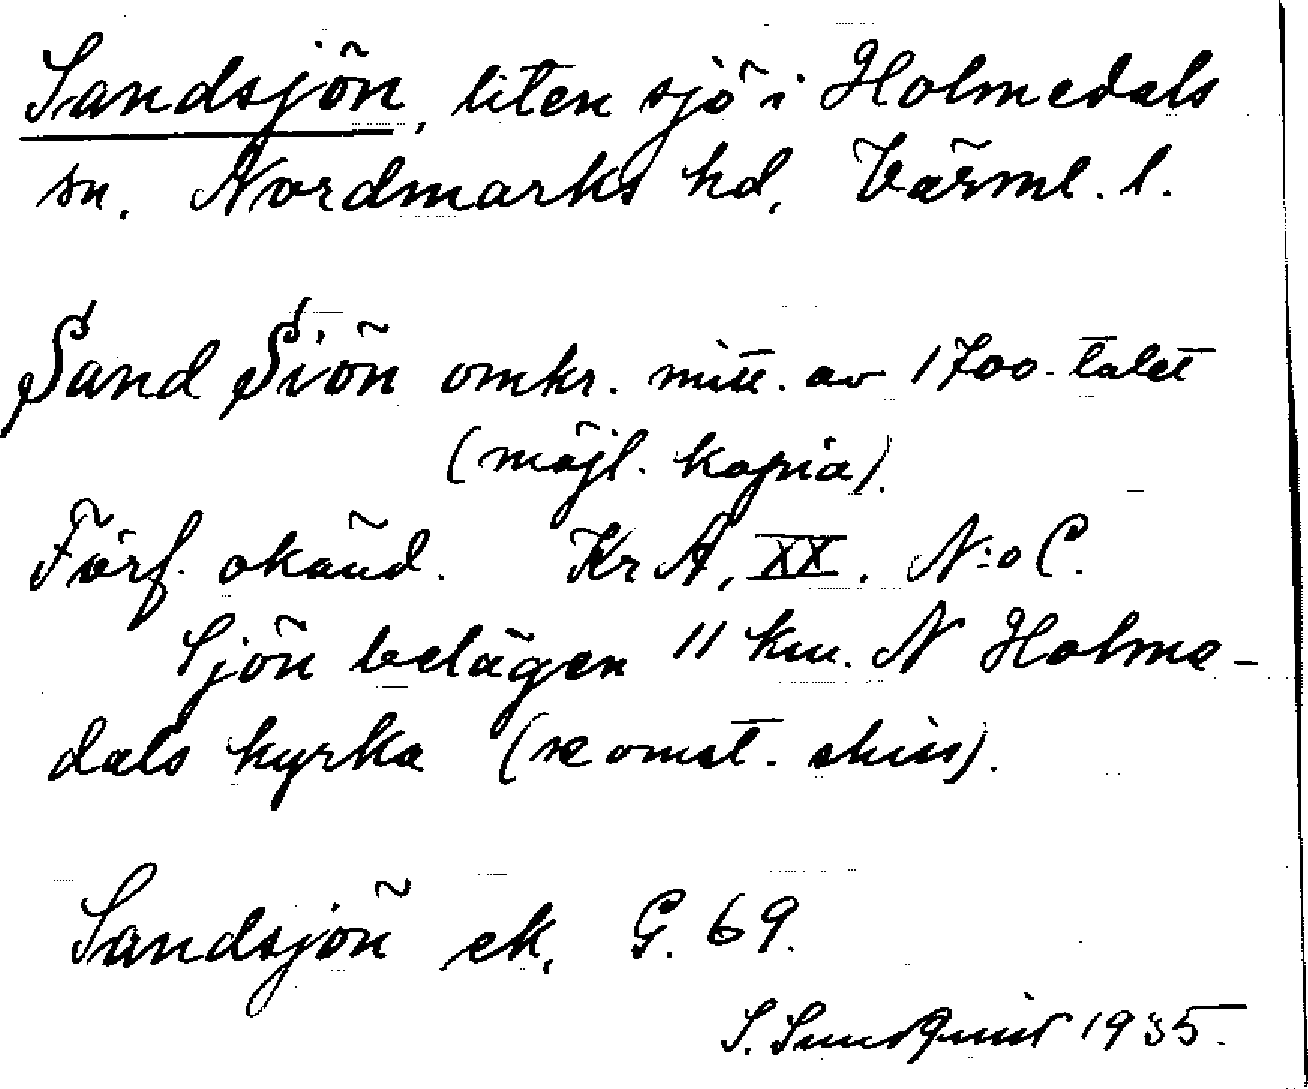 Sandsjön, liten sjö i Holmedals
sn. Nordmarks hd, Värml. l.
Sand Siön omkr. mitt. av 1700-talet
(möjl. kopia).
Förf. okänd. Kr A, XX. N:o C.
Sjön belägen 11 km. N Holme-
dals kyrka (se omst. skiss).
Sandsjön ek. G. 69.
S. Sundquist 1935.